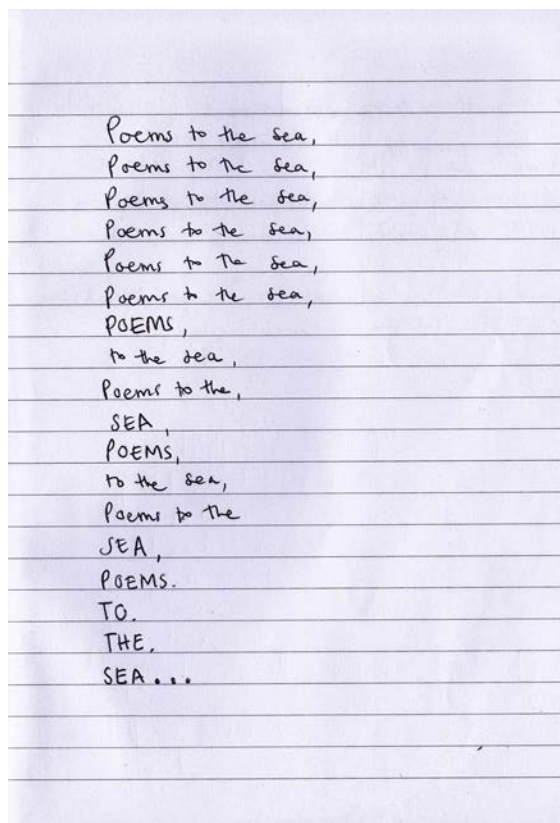 Poems to the sea,
Poems to the sea,
Poems to the sea,
Poems to the sea,
Poems to the sea,
Poems to the sea,
POEMS,
to the sea,
Poems to the,
SEA,
POEMS,
to the sea,
Poems to the
SEA,
POEMS.
TO.
THE.
SEA...